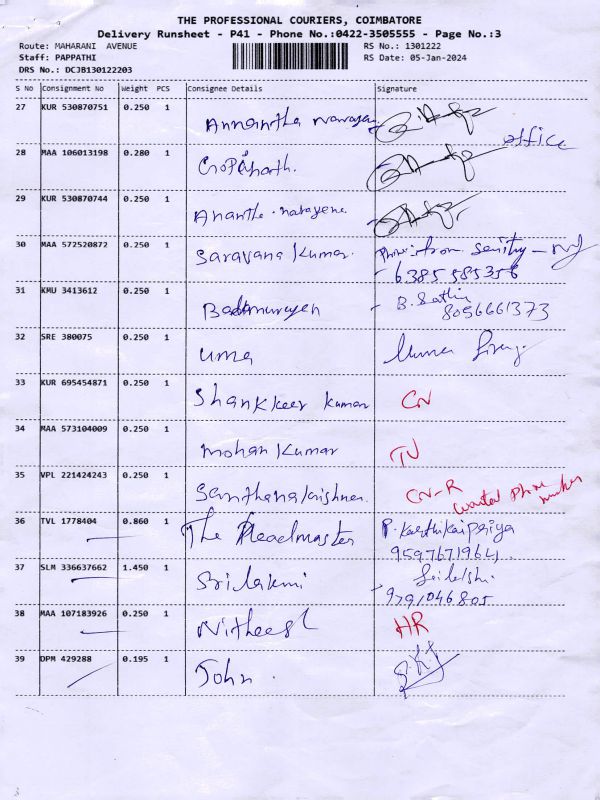 THE PROFESSIONAL COURIERS, COIMBATORE
Delivery Runsheet - P41 - Phone No.:0422-3505555 - Page No.:3
Route: MAHARANI AVENUE
RS No.: 1301222
Staff: PAPPATHI
RS Date: 05-Jan-2024
DRS No.: DCJB130122203
S No Consignment No Weight PCS Consignee Details Signature
27 KUR 530870751 0.250 1
office
28 MAA 106013198 0.280 1 Gopinath.
29 KUR 530870744 0.250 1 Anantha narayena
30 MAA 572520872 0.250 1 Saravana Kumar.
6385585356
31 KMU 3413612 0.250 1 B. Sathi
8056661373
32 SRE 380075 0.250 1 uma
33 KUR 695454871 0.250 1 Shankkeer kumar CN
34 MAA 573104009 0.250 1 mohan Kumar
35 VPL 221424243 0.250 1 CN-R wanted phone number
36 TVL 1778404 0.860 1 The P. Karthikaipriya
9597671964
37 SLM 336637662 1.450 1 Srilakmi
9791046805
38 MAA 107183926 0.250 1 Nitheesh HR
39 DPM 429288 0.195 1 John.